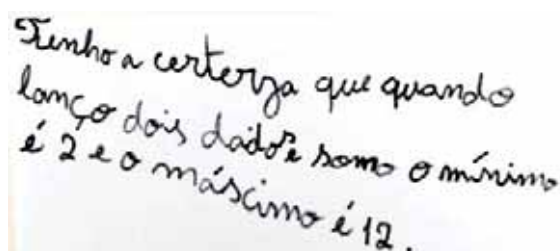 Tenho a certerza que quando
lanço dois dados e somo o mínimo
é 2 e o máscimo é 12.